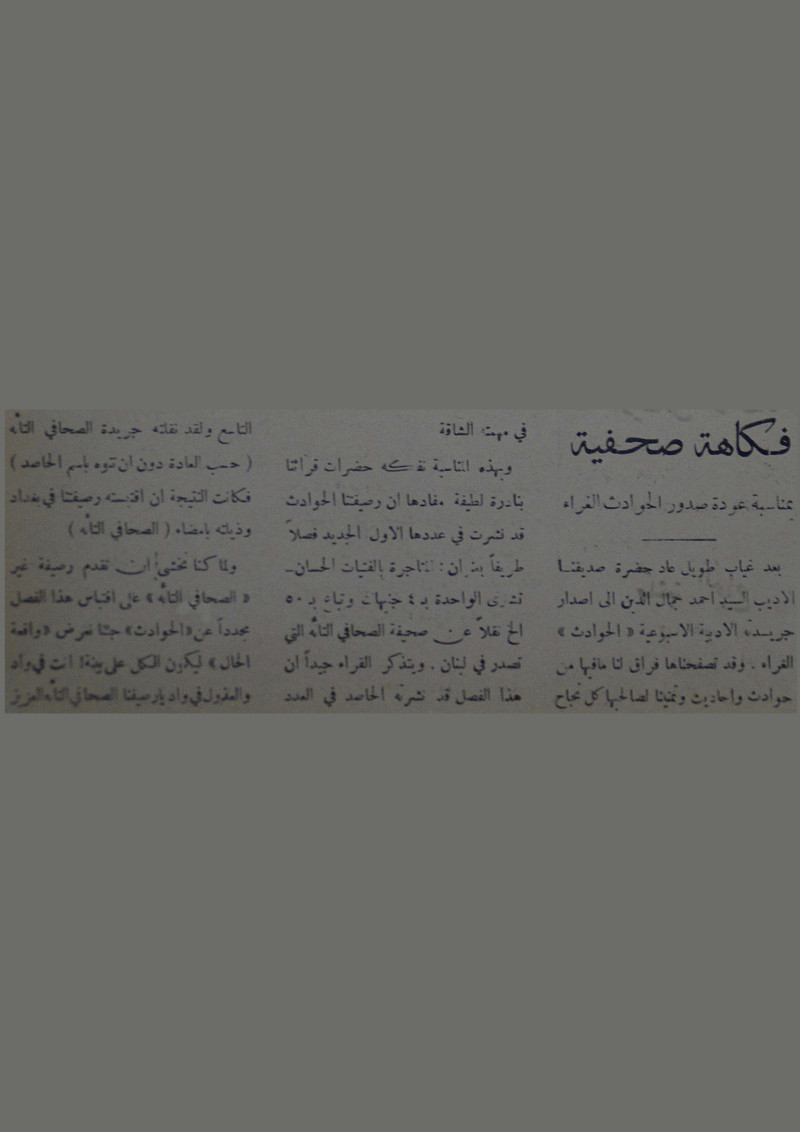 فكاهة صحفية
بمناسبة عودة صدور الحوادث الغراء
بعد غياب طويل عاد حضرة صديقنا
الاديب السيد احمد جمال الدين الى اصدار
جريدته الادبية الاسبوعية « الحوادث »
الغراء . وقد تصفحناها فراق لنا مافيها من
حوادث واحاديث وتمنينا لصاحبها كل نجاح
في مهمته الشاقة
وبهذه المناسبة نفكه حضرات قرائنا
بنادرة لطيفة مفادها ان رصيفتنا الحوادث
قد نشرت في عددها الاول الجديد فصلاً
طريفاً بعنوان : المتاجرة بالفتيات الحسان ـ
تشترى الواحدة بـ ٤ جنيهات وتباع بـ ٥٠
الخ نقلاً عن صحيفة الصحافي التائه التي
تصدر في لبنان . ويتذكر القراء جيداً ان
هذا الفصل قد نشرته الحاصد في العدد
التاسع ولقد نقلته جريدة الصحافي التائه
( حسب العادة دون ان تنوه باسم الحاصد )
فكانت النتيجة ان اقتبسته رصيفتنا في بغداد
وذيلته بامضاء ( الصحافي التائه )
ولما كنا نخشى ان تقدم رصيفة غير
« الصحافي التائه » على اقتباس هذا الفصل
مجدداً عن «الحوادث» جئنا نعرض «واقعة
الحال» ليكون الكل على بينة! انت في واد
والعذول في واد يارصيفنا الصحافي التائه العزيز